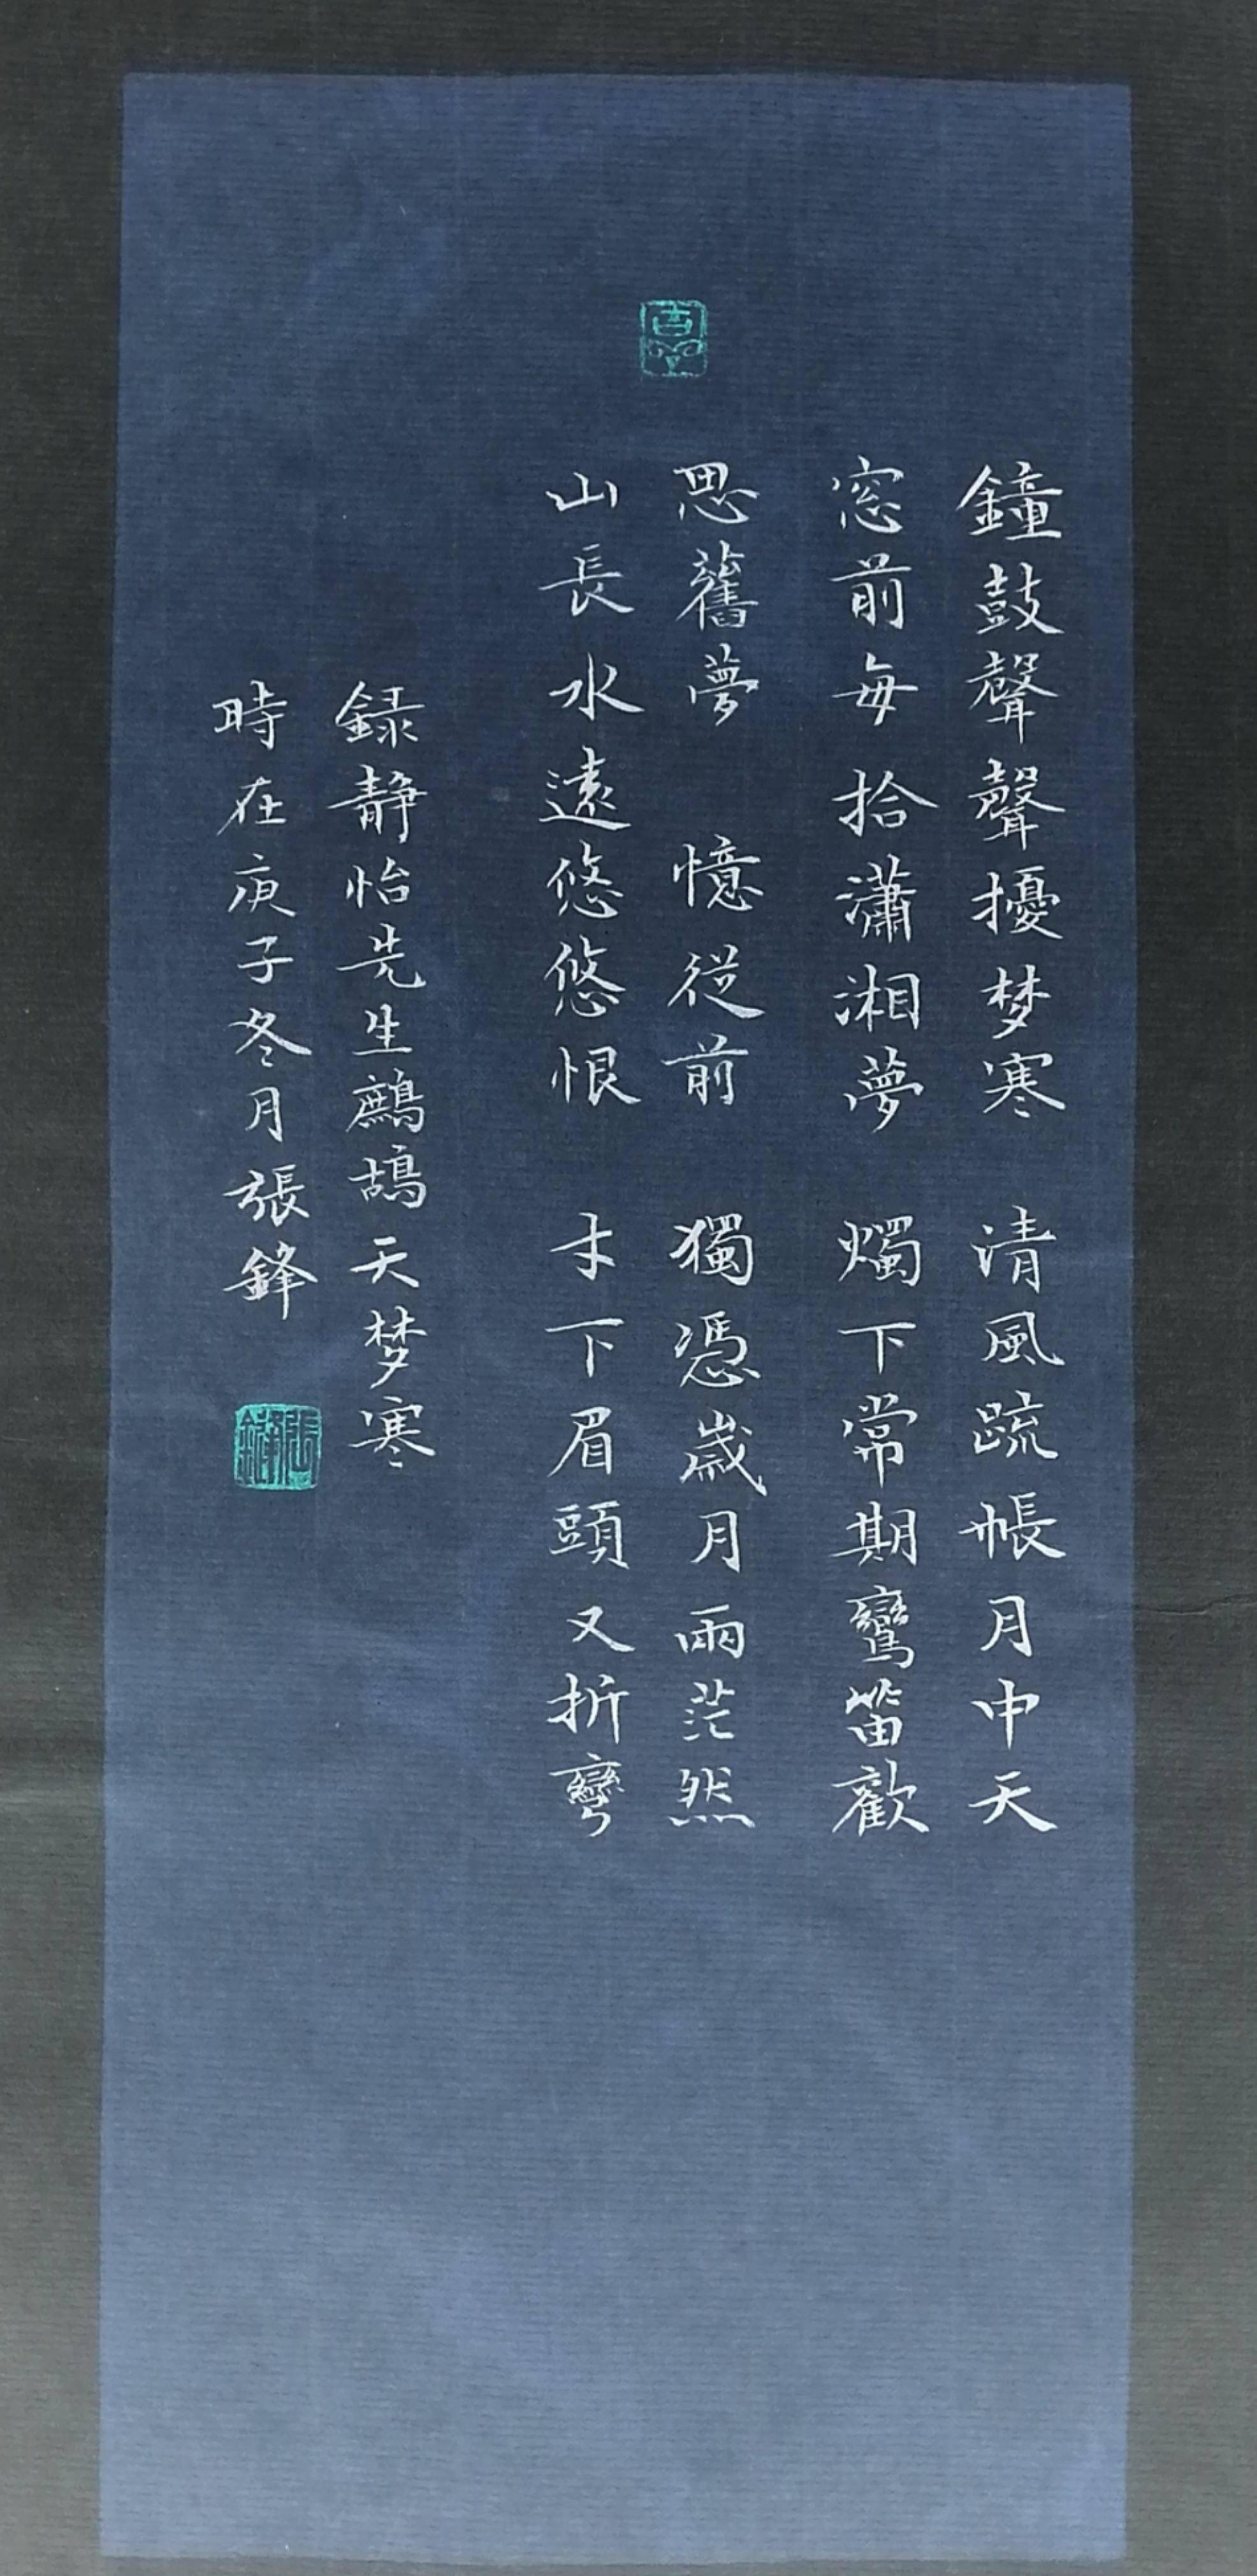 鐘鼓聲聲擾梦寒 清風疏帳月中天
窓前每拾瀟湘夢 燭下常期鸞笛歡
思舊夢 憶從前 獨憑歲月兩茫然
山長水遠悠悠恨 才下眉頭又折彎
録静怡先生鷓鴣天梦寒
時在庚子冬月張鋒